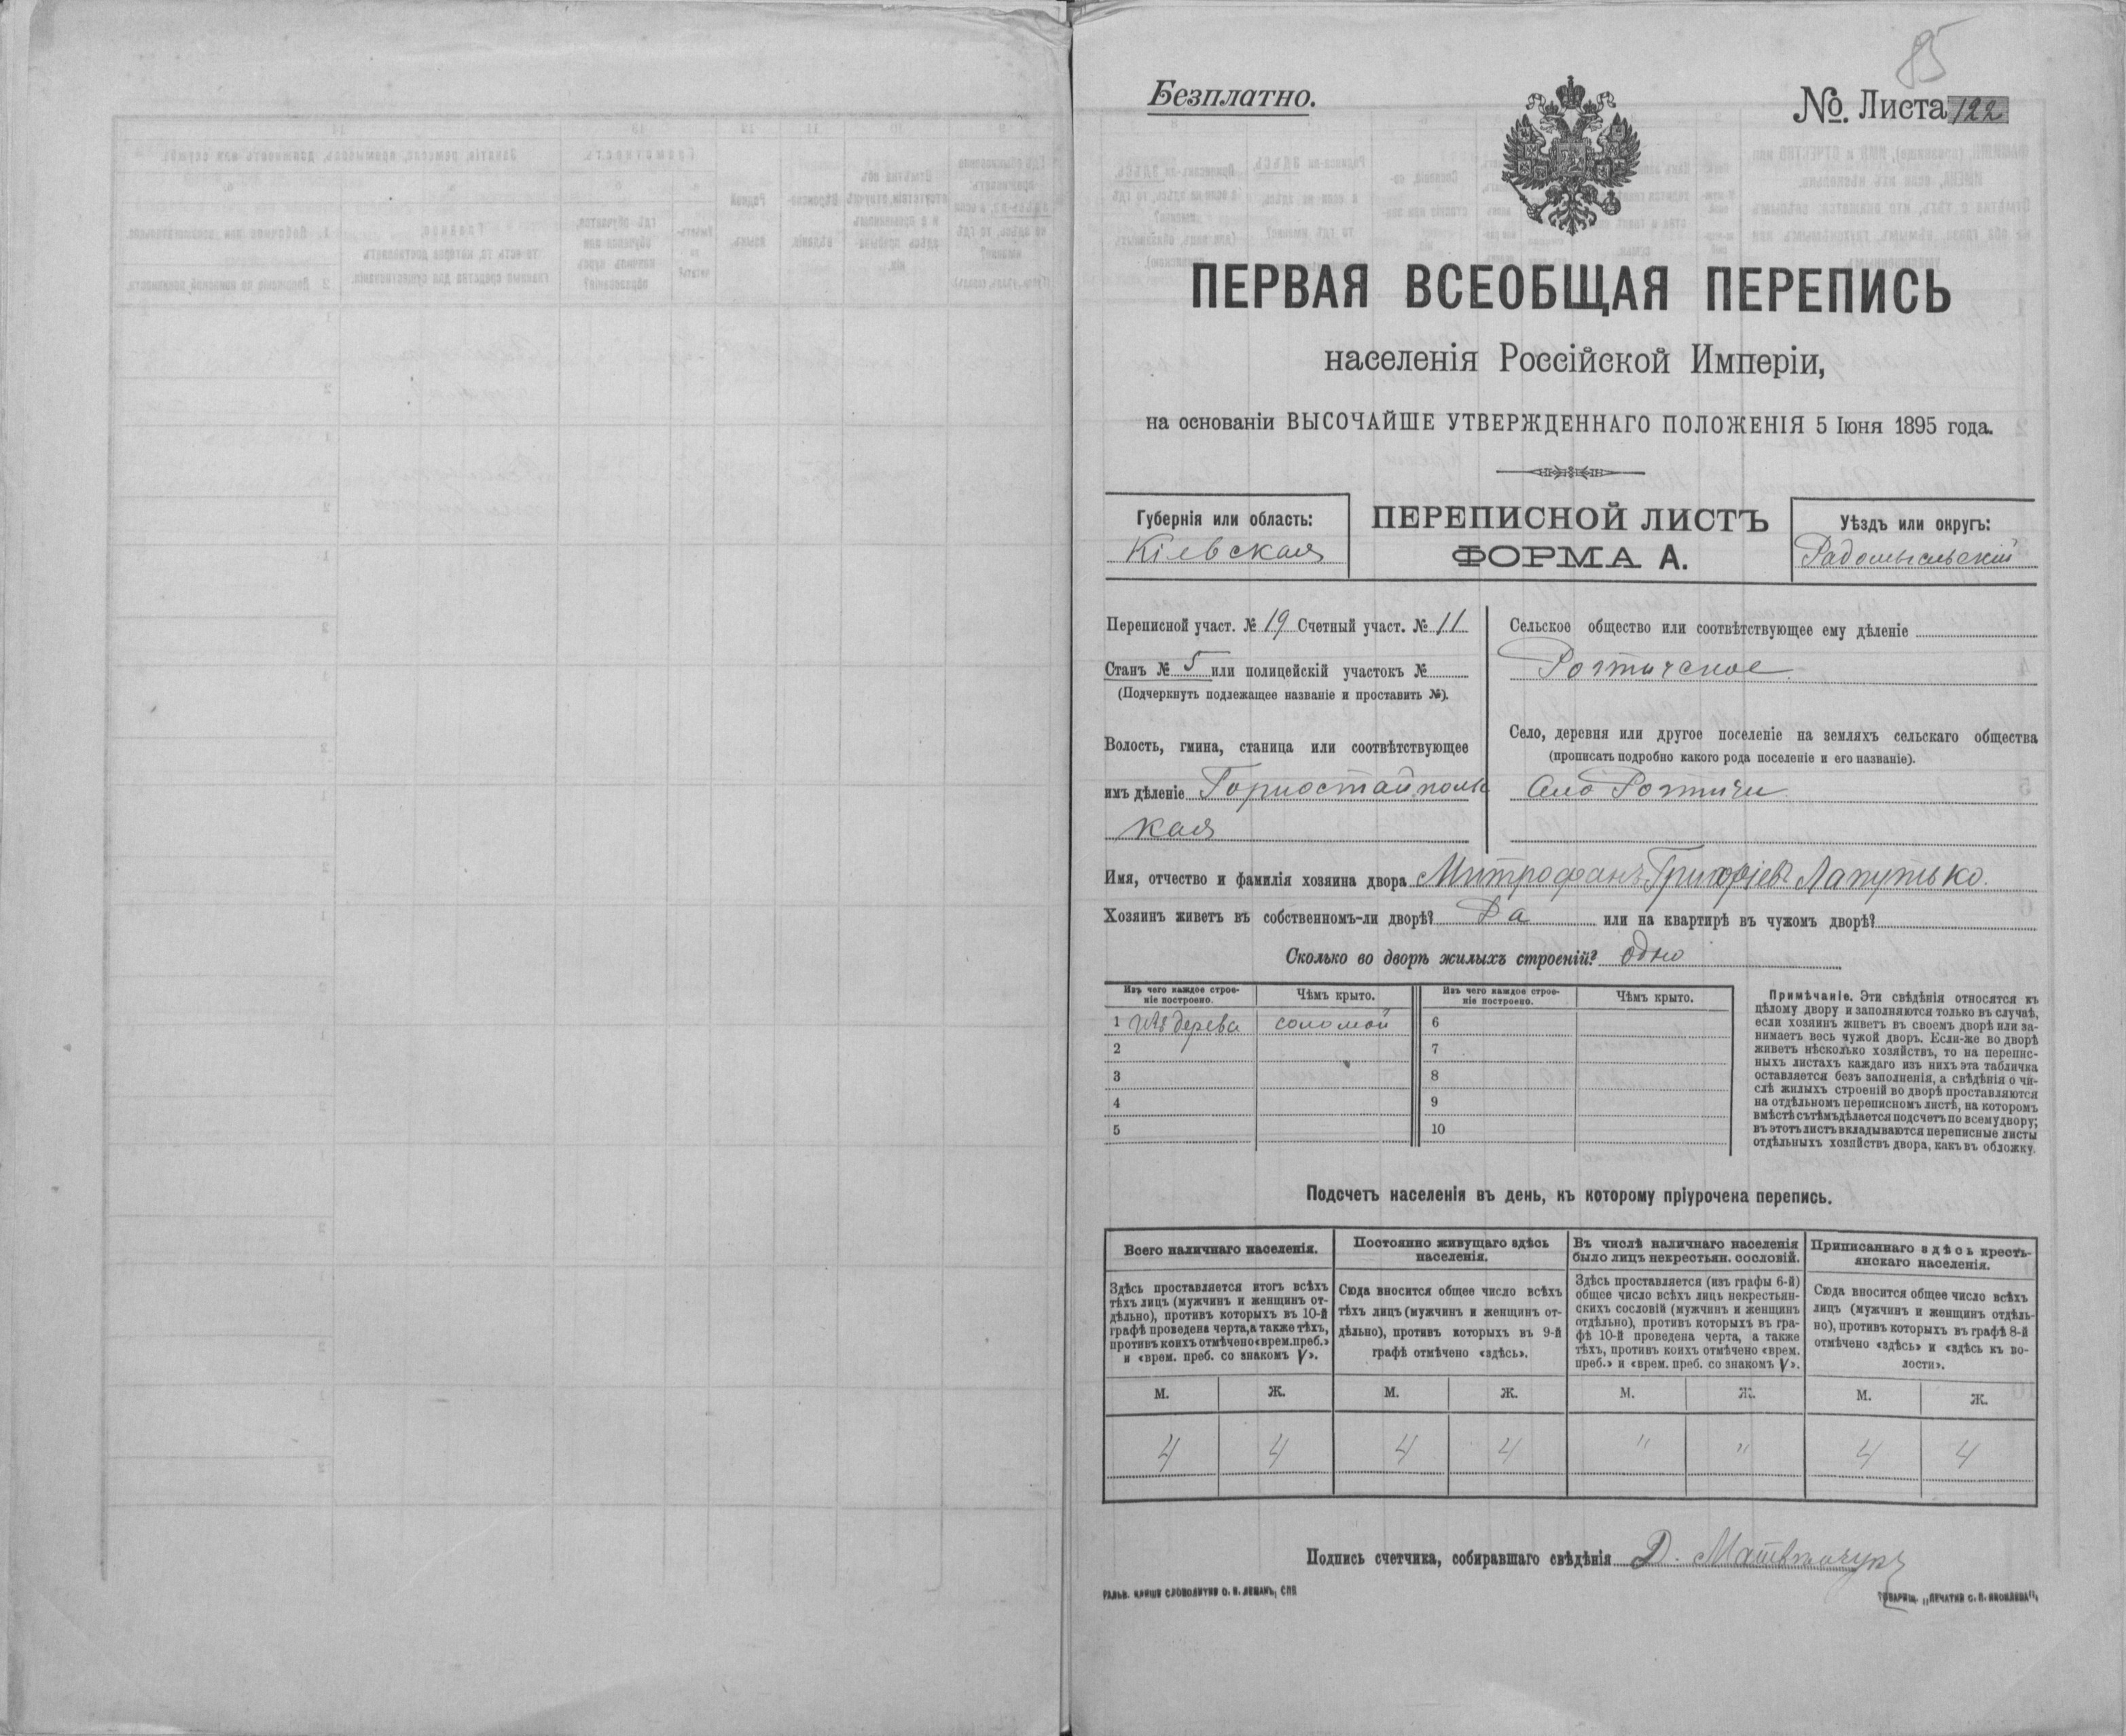 85
Безплатно.
№. Листа 122
ПЕРВАЯ ВСЕОБЩАЯ ПЕРЕПИСЬ
населенія Россійской Имперіи,
на основаніи ВЫСОЧАЙШЕ УТВЕРЖДЕННАГО ПОЛОЖЕНІЯ 5 Іюня 1895 года.
Губернія или область:
Кіевская
ПЕРЕПИСНОЙ ЛИСТЪ
ФОРМА А.
Уѣздъ или округъ:
Радомысльскій
Переписной участ. № 19 Счетный участ. № 11
Станъ № 5 или полицейскій участокъ №
(Подчеркнуть подлежащее названіе и проставить №).
Волость, гмина, станица или соотвѣтствующее
имъ дѣленіе Горностайполь
кая
Сельское общество или соотвѣтствующее ему дѣленіе
Ротичское
Село, деревня или другое поселеніе на земляхъ сельскаго общества
(прописать подробно какого рода поселеніе и его названіе).
Село Ротичи
Имя, отчество и фамилія хозяина двора Митрофанъ Григоріевъ Лапутько.
Хозяинъ живетъ въ собственномъ-ли дворѣ? Да или на квартирѣ въ чужомъ дворѣ?
Сколько во дворѣ жилыхъ строеній? одно
Изъ чего каждое строе-
ніе построено.
Чѣмъ крыто.
Изъ чего каждое строе-
ніе построено.
Чѣмъ крыто.
1 Изъ дерева соломой 6
2 7
3 8
4 9
5 10
Примѣчаніе. Эти свѣдѣнія относятся къ
цѣлому двору и заполняются только въ случаѣ,
если хозяинъ живетъ въ своемъ дворѣ или за-
нимаетъ весь чужой дворъ. Если-же во дворѣ
живетъ нѣсколько хозяйствъ, то на перепис-
ныхъ листахъ каждаго изъ нихъ эта табличка
оставляется безъ заполненія, а свѣдѣнія о чи-
слѣ жилыхъ строеній во дворѣ проставляются
на отдѣльномъ переписномъ листѣ, на которомъ
вмѣстѣ съ тѣмъ дѣлается подсчетъ по всему двору;
въ этотъ листъ вкладываются переписные листы
отдѣльныхъ хозяйствъ двора, какъ въ обложку.
Подсчетъ населенія въ день, къ которому пріурочена перепись.
Всего наличнаго населенія.
Здѣсь проставляется итогъ всѣхъ
тѣхъ лицъ (мужчинъ и женщинъ от-
дѣльно), противъ которыхъ въ 10-й
графѣ проведена черта, а также тѣхъ,
противъ коихъ отмѣчено «врем. преб.»
и «врем. преб. со знакомъ V».
Постоянно живущаго здѣсь
населенія.
Сюда вносится общее число всѣхъ
тѣхъ лицъ (мужчинъ и женщинъ от-
дѣльно), противъ которыхъ въ 9-й
графѣ отмѣчено «здѣсь».
Въ числѣ наличнаго населенія
было лицъ некрестьян. сословій.
Здѣсь проставляется (изъ графы 6-й)
общее число всѣхъ лицъ некрестьян-
скихъ сословій (мужчинъ и женщинъ
отдѣльно), противъ которыхъ въ гра-
фѣ 10-й проведена черта, а также
тѣхъ, противъ коихъ отмѣчено «врем.
преб.» и «врем. преб. со знакомъ V».
Приписаннаго здѣсь кресть-
янскаго населенія.
Сюда вносится общее число всѣхъ
лицъ (мужчинъ и женщинъ отдѣль-
но), противъ которыхъ въ графѣ 8-й
отмѣчено «здѣсь» и «здѣсь къ во-
лости».
М. Ж. М. Ж. М. Ж. М. Ж.
4 4 4 4 " " 4 4
Подпись счетчика, собиравшаго свѣдѣнія Д. Матвійчукъ
ГАЛЬВ. КЛИШЕ СЛОВОЛИТНИ О. И. ЛЕМАНЪ, СПБ
ТОВАРИЩ. „ПЕЧАТНЯ С. П. ЯКОВЛЕВА".